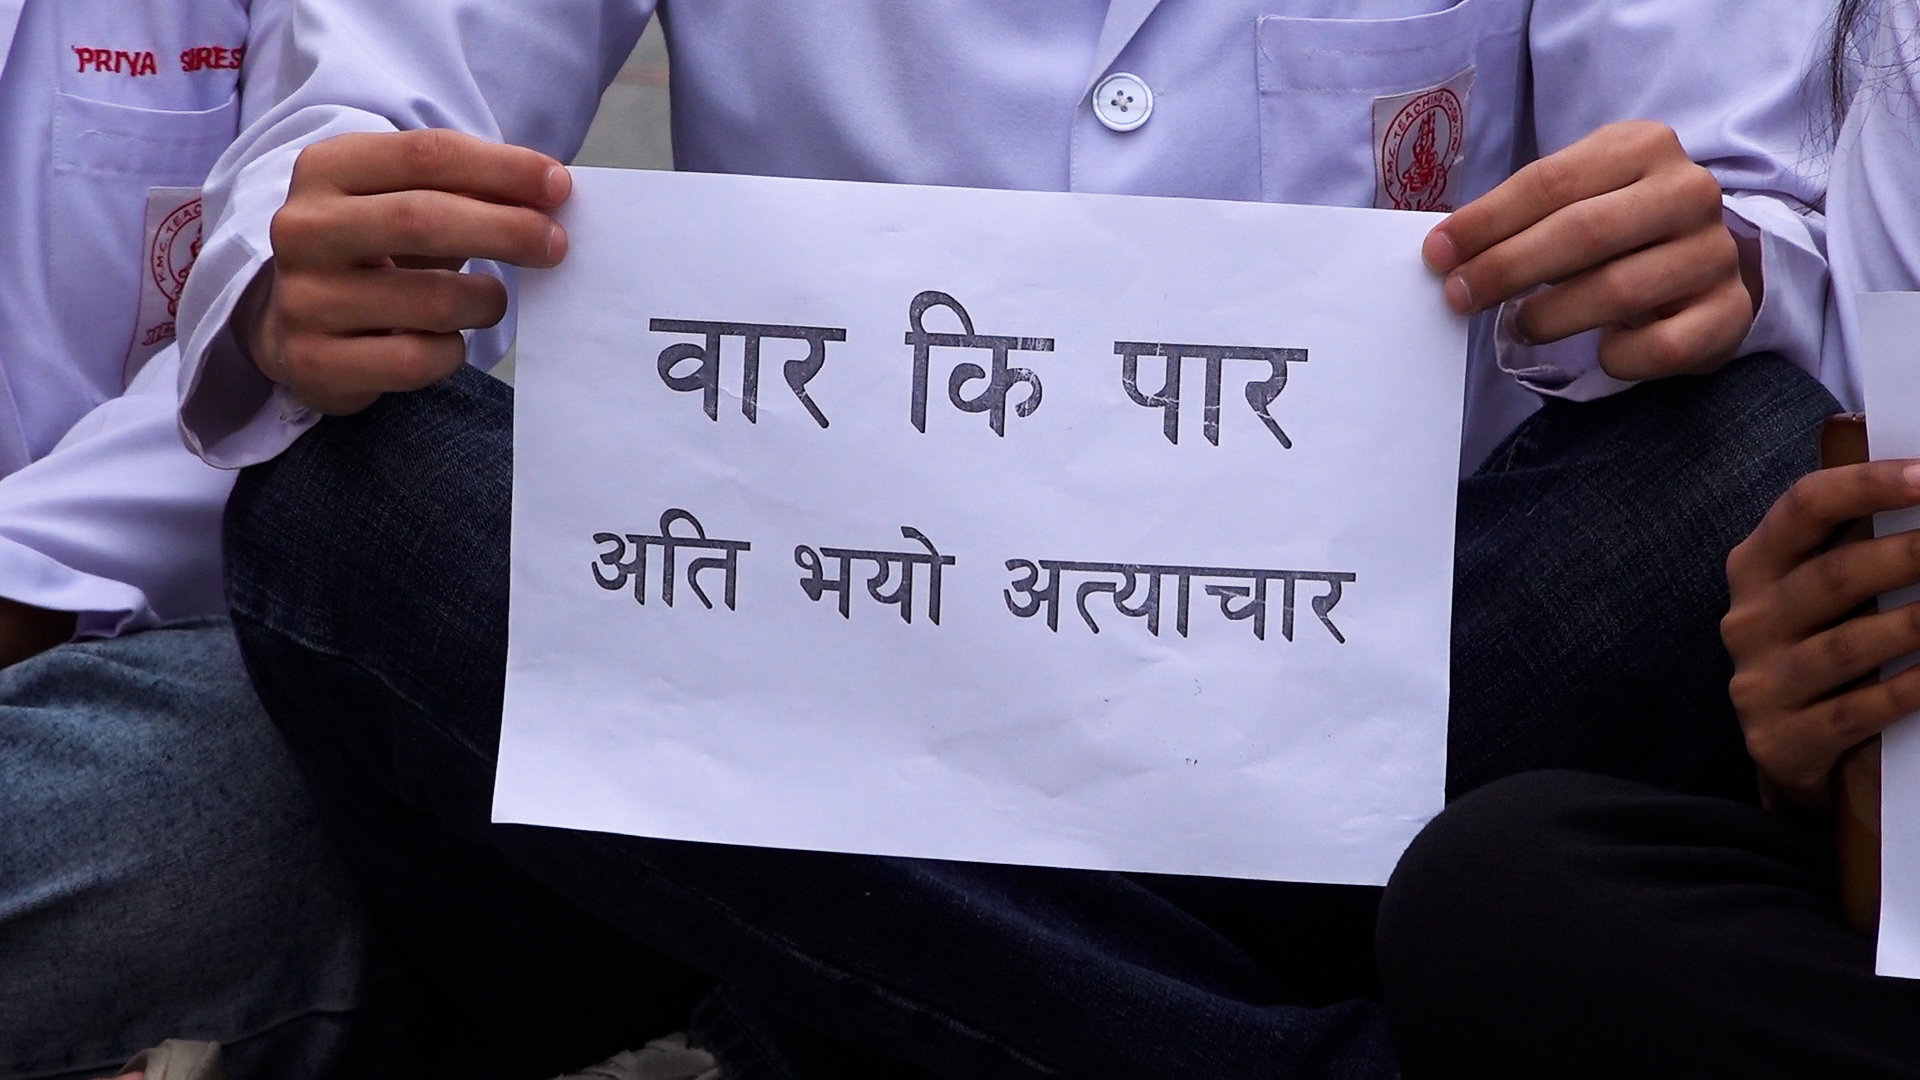 PRIYA SURES
K.M.C. TEACHING HOSPITAL
K.M.C. TEAC
वार कि पार
अति भयो अत्याचार